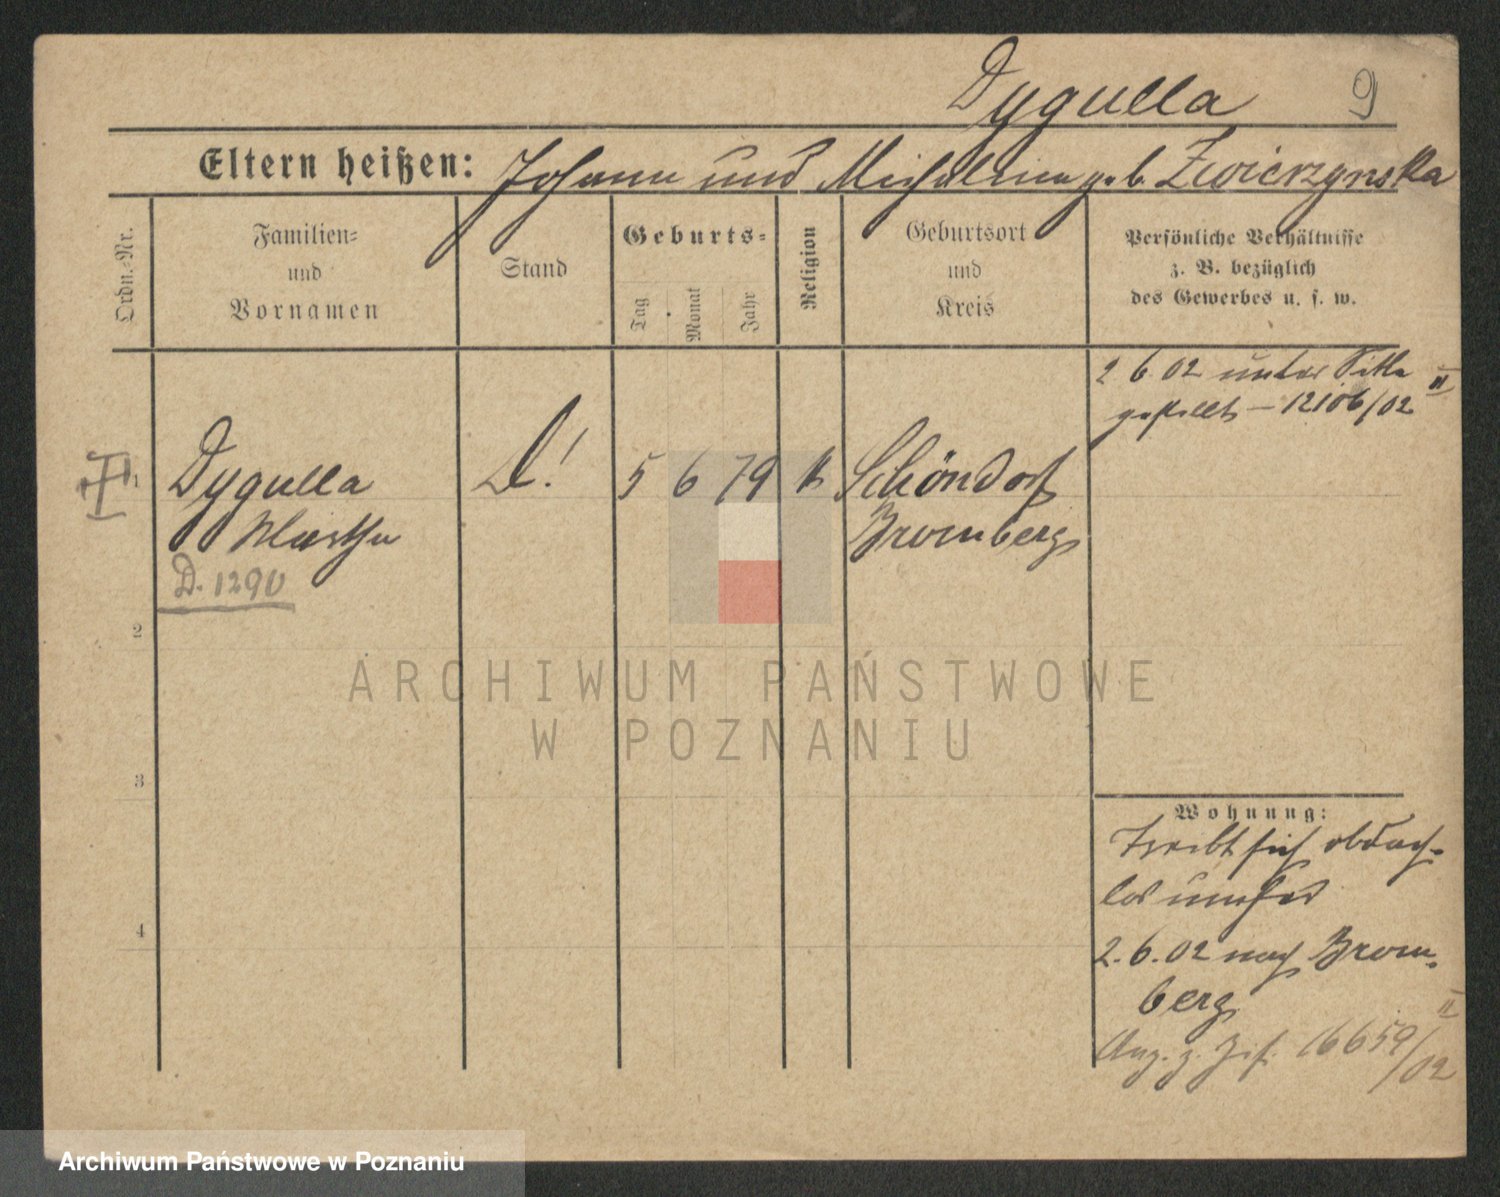 Dygulla
9
Eltern heißen: Johann und Michalina geb. Zwierzynska
Ordn.-Nr.
Familien- und Vornamen
Stand
Geburts-
Tag
Monat
Jahr
Religion
Geburtsort und Kreis
Persönliche Verhältnisse
z. B. bezüglich
des Gewerbes u. s. w.
2 6.02 unter Sitte II
gestellt – 12106/02
1
Dygulla
Martha
D. 1290
D!
5 6 79 k
Schöndorf
Bromberg
2
3
4
Wohnung:
Treibt sich obdach-
los umher
2.6.02 nach Brom-
berg
16659/02 II
ARCHIWUM PAŃSTWOWE
W POZNANIU
Archiwum Państwowe w Poznaniu